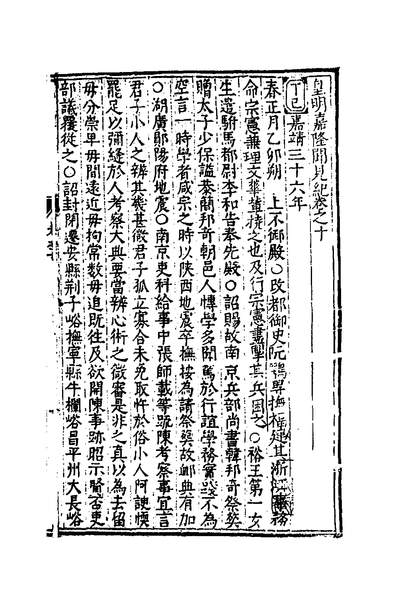 皇明嘉隆聞見紀卷之十
丁巳嘉靖三十六年
春正月乙卯朔　上不御殿○改都御史阮鶚專撫福建其浙江事務
命宗憲兼理文華薦持之也及行宗憲盡理其兵國之○裕王第一女
生遣駙馬都尉李和告奉先殿○詔賜故南京兵部尚書韓邦奇祭葬
贈太子少保謚恭簡邦奇朝邑人慱學多聞篤於行誼學務實踐不為
空言一時學者咸宗之時以陝西地震卒撫按為請祭葬故卹典有加
○湖廣鄖陽府地震○南京吏科給事中張師載等疏陳考察事宜言
君子小人之辨其幾甚微君子孤立寡合未免取忤於俗小人阿諛
罷足以彌縫於人考察大典要當辨心術之微審是非之真以為去留
毋分崇卑毋間遠近毋拘常數毋追既往及欲開陳事跡昭示賢否吏
部議覆從之○詔封閉遷安縣荆子峪撫寧縣牛欄峪昌平州大長峪